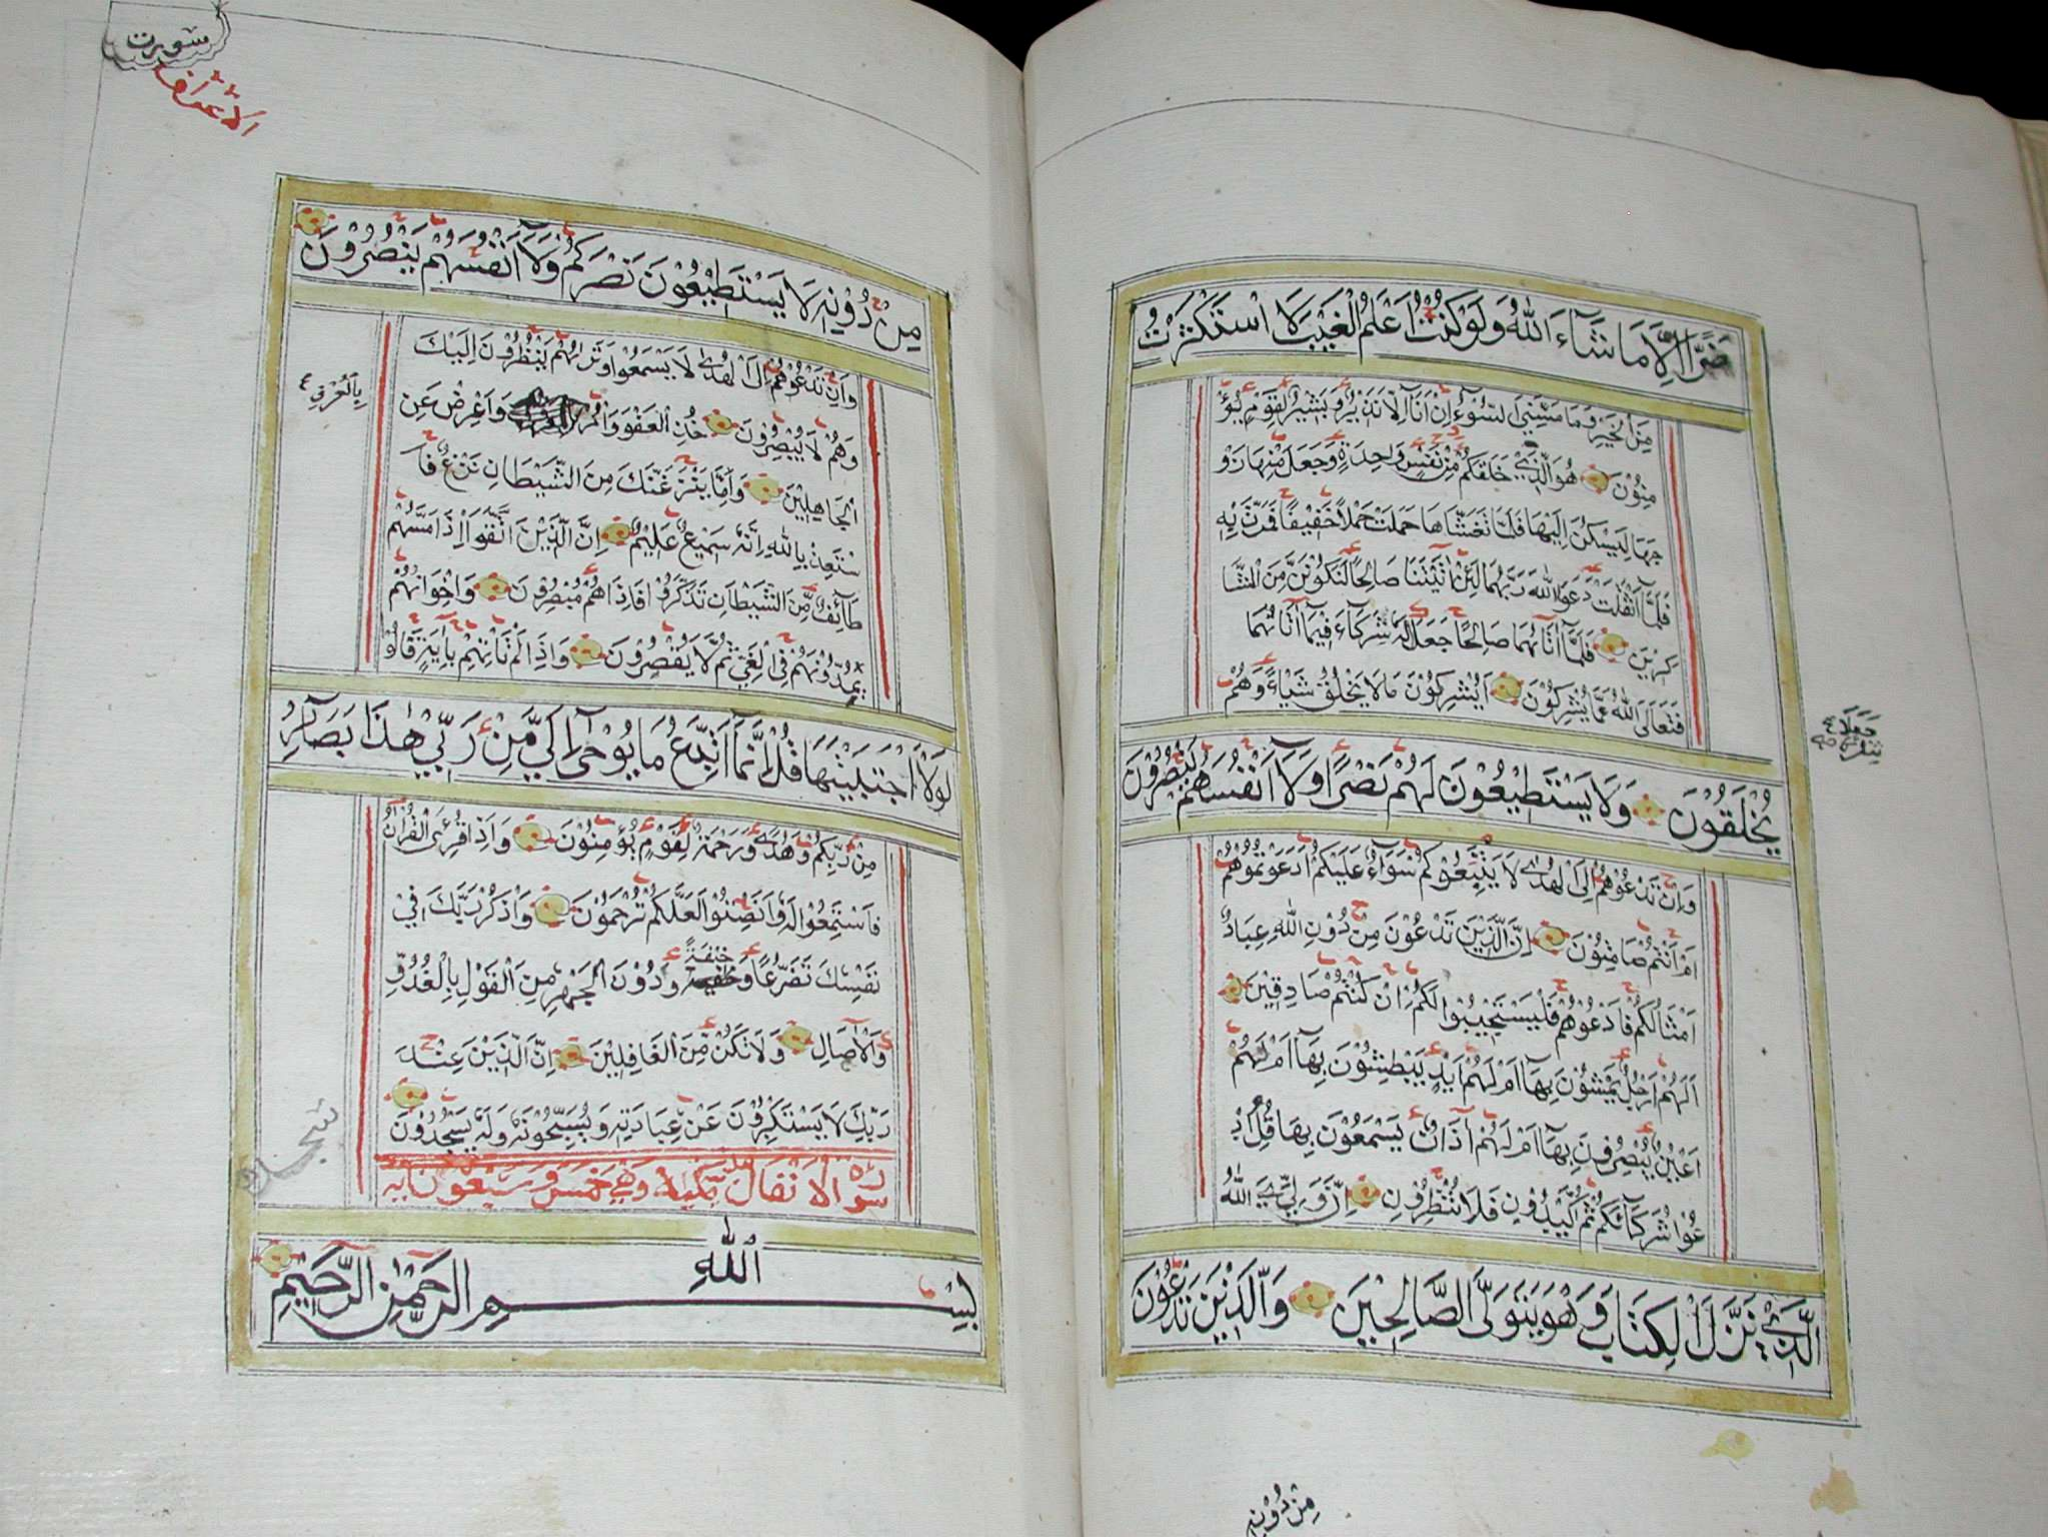 ضَرًّا اِلَّا مَا شَآءَ اللّٰهُ وَلَوْ كُنْتُ اَعْلَمُ الْغَيْبَ لَا اسْتَكْثَرْتُ
مِنَ الْخَيْرِ وَمَا مَسَّنِيَ السُّوْٓءُ اِنْ اَنَا۬ اِلَّا نَذِيْرٌ وَبَشِيْرٌ لِقَوْمٍ يُؤْ
مِنُوْنَ هُوَ الَّذِيْ خَلَقَكُمْ مِنْ نَفْسٍ وَاحِدَةٍ وَجَعَلَ مِنْهَا زَوْ
جَهَا لِيَسْكُنَ اِلَيْهَا فَلَمَّا تَغَشّٰاهَا حَمَلَتْ حَمْلًا خَفِيْفًا فَمَرَّتْ بِهٖ
فَلَمَّآ اَثْقَلَتْ دَعَوَا اللّٰهَ رَبَّهُمَا لَئِنْ اٰتَيْتَنَا صَالِحًا لَنَكُوْنَنَّ مِنَ الشَّا
كِرِيْنَ فَلَمَّآ اٰتٰاهُمَا صَالِحًا جَعَلَا لَهٗ شُرَكَآءَ فِيْمَآ اٰتَاهُمَا
فَتَعَالَى اللّٰهُ عَمَّا يُشْرِكُوْنَ اَيُشْرِكُوْنَ مَا لَا يَخْلُقُ شَيْـًٔا وَهُمْ
يُخْلَقُوْنَ وَلَا يَسْتَطِيْعُوْنَ لَهُمْ نَصْرًا وَلَآ اَنْفُسَهُمْ يَنْصُرُوْنَ
وَاِنْ تَدْعُوْهُمْ اِلَى الْهُدٰى لَا يَتَّبِعُوْكُمْ سَوَآءٌ عَلَيْكُمْ اَدَعَوْتُمُوْهُمْ
اَمْ اَنْتُمْ صَامِتُوْنَ اِنَّ الَّذِيْنَ تَدْعُوْنَ مِنْ دُوْنِ اللّٰهِ عِبَادٌ
اَمْثَالُكُمْ فَادْعُوْهُمْ فَلْيَسْتَجِيْبُوْا لَكُمْ اِنْ كُنْتُمْ صَادِقِيْنَ
اَلَهُمْ اَرْجُلٌ يَمْشُوْنَ بِهَآ اَمْ لَهُمْ اَيْدٍ يَبْطِشُوْنَ بِهَآ اَمْ لَهُمْ
اَعْيُنٌ يُبْصِرُوْنَ بِهَآ اَمْ لَهُمْ اٰذَانٌ يَسْمَعُوْنَ بِهَا قُلِ ادْ
عُوْا شُرَكَآئَكُمْ ثُمَّ كِيْدُوْنِ فَلَا تُنْظِرُوْنِ اِنَّ وَلِيِّيَ اللّٰهُ
الَّذِيْ نَزَّلَ الْكِتَابَ وَهُوَ يَتَوَلَّى الصَّالِحِيْنَ وَالَّذِيْنَ تَدْعُوْنَ
مِنْ دُوْنِهٖ
سورت
الاعراف
مِنْ دُوْنِهٖ لَا يَسْتَطِيْعُوْنَ نَصْرَكُمْ وَلَآ اَنْفُسَهُمْ يَنْصُرُوْنَ
وَاِنْ تَدْعُوْهُمْ اِلَى الْهُدٰى لَا يَسْمَعُوْا وَتَرَاهُمْ يَنْظُرُوْنَ اِلَيْكَ
وَهُمْ لَا يُبْصِرُوْنَ خُذِ الْعَفْوَ وَأْمُرْ وَاَعْرِضْ عَنِ
بِالْعُرْفِ
الْجَاهِلِيْنَ وَاِمَّا يَنْزَغَنَّكَ مِنَ الشَّيْطَانِ نَزْغٌ فَا
سْتَعِذْ بِاللّٰهِ اِنَّهٗ سَمِيْعٌ عَلِيْمٌ اِنَّ الَّذِيْنَ اتَّقَوْا اِذَا مَسَّهُمْ
طَآئِفٌ مِّنَ الشَّيْطَانِ تَذَكَّرُوْا فَاِذَا هُمْ مُبْصِرُوْنَ وَاِخْوَانُهُمْ
يَمُدُّوْنَهُمْ فِي الْغَيِّ ثُمَّ لَا يُقْصِرُوْنَ وَاِذَا لَمْ تَاْتِهِمْ بِاٰيَةٍ قَالُوْا
لَوْلَا اجْتَبَيْتَهَا قُلْ اِنَّمَآ اَتَّبِعُ مَا يُوْحٰٓى اِلَيَّ مِنْ رَبِّيْ هٰذَا بَصَآئِرُ
مِنْ رَبِّكُمْ وَهُدًى وَرَحْمَةٌ لِقَوْمٍ يُؤْمِنُوْنَ وَاِذَا قُرِئَ الْقُرْاٰنُ
فَاسْتَمِعُوْا لَهٗ وَاَنْصِتُوْا لَعَلَّكُمْ تُرْحَمُوْنَ وَاذْكُرْ رَبَّكَ فِيْ
نَفْسِكَ تَضَرُّعًا وَخِيْفَةً وَدُوْنَ الْجَهْرِ مِنَ الْقَوْلِ بِالْغُدُوِّ
وَالْاٰصَالِ وَلَا تَكُنْ مِنَ الْغَافِلِيْنَ اِنَّ الَّذِيْنَ عِنْدَ
رَبِّكَ لَا يَسْتَكْبِرُوْنَ عَنْ عِبَادَتِهٖ وَيُسَبِّحُوْنَهٗ وَلَهٗ يَسْجُدُوْنَ
سورة الانفال وهي خمس وسبعون اية
بِسْمِ اللّٰهِ الرَّحْمٰنِ الرَّحِيْمِ